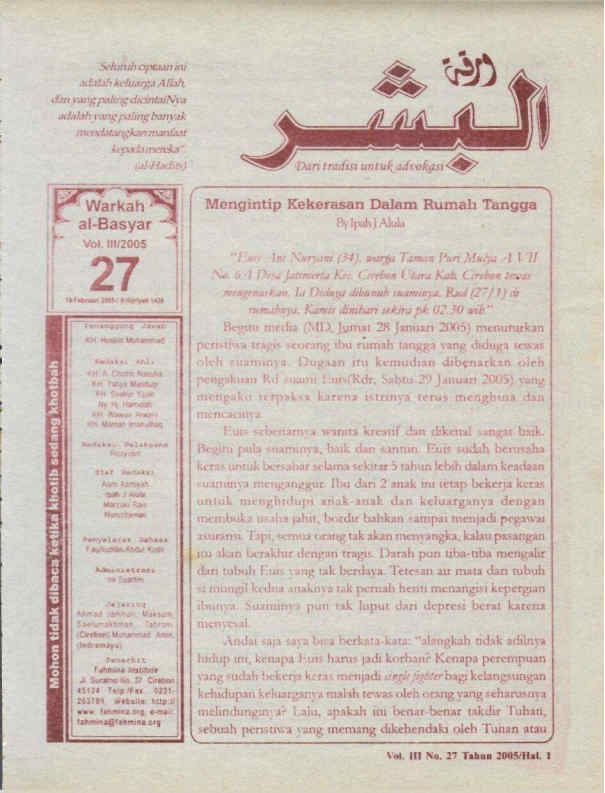 Seluruh ciptaan ini
adalah keluarga Allah,
dan yang paling dicintaiNya
adalah yang paling banyak
mendatangkan manfaat
kepada mereka"
(al-Hadits)
ورقة
البشر
Dari tradisi untuk advokasi
Warkah
al-Basyar
Vol. III/2005
27
Penanggung Jawab
KH. Husein Muhammad
Redaksi Ahli
KH. Syakur Yasin
Ny. Hj. Hamidah
KH. Wawan Arwani
KH. Maman Imanulhaq
Redaksi Pelaksana
Rosyidin
Staf Redaksi
Ipah J Alula
Marzuki Rais
Nuruzzaman
Penyelaras Bahasa
Faqihuddin Abdul Kodir
Administrasi
Jejaring
(Cirebon) Muhammad Amin,
(Indramayu)
Penerbit
Fahmina Institute
Jl. Suratno No. 37 Cirebon
45124 Telp/Fax. 0231-
203789, Website: http://
www. fahmina.org, e-mail:
fahmina@fahmina.org
Mohon tidak dibaca ketika khotib sedang khotbah
Mengintip Kekerasan Dalam Rumah Tangga
By Ipah J Alula
"Euis Ani Nuryani (34), warga Taman Puri Mulya A VII
No. 6 A Desa Jatimerta Kec. Cirebon Utara Kab. Cirebon tewas
mengenaskan. Ia Diduga dibunuh suaminya, Rud (27/1) di
rumahnya, Kamis dinihari sekira pk 02.30 wib."
Begitu media (MD, Jumat 28 Januari 2005) menuturkan
peristiwa tragis seorang ibu rumah tangga yang diduga tewas
oleh suaminya. Dugaan itu kemudian dibenarkan oleh
pengakuan Rd suami Euis(Rdr, Sabtu 29 Januari 2005) yang
mengaku terpaksa karena istrinya terus menghina dan
mencacinya.
Euis sebenarnya wanita kreatif dan dikenal sangat baik.
Begitu pula suaminya, baik dan santun. Euis sudah berusaha
keras untuk bersabar selama sekitar 5 tahun lebih dalam keadaan
suaminya menganggur. Ibu dari 2 anak ini tetap bekerja keras
untuk menghidupi anak-anak dan keluarganya dengan
membuka usaha jahit, bordir bahkan sampai menjadi pegawai
asuransi. Tapi, semua orang tak akan menyangka, kalau pasangan
itu akan berakhir dengan tragis. Darah pun tiba-tiba mengalir
dari tubuh Euis yang tak berdaya. Tetesan air mata dari tubuh
si mungil kedua anaknya tak pernah henti menangisi kepergian
ibunya. Suaminya pun tak luput dari depresi berat karena
menyesal.
Andai saja saya bisa berkata-kata: "alangkah tidak adilnya
hidup ini, kenapa Euis harus jadi korban? Kenapa perempuan
yang sudah bekerja keras menjadi single fighter bagi kelangsungan
kehidupan keluarganya malah tewas oleh orang yang seharusnya
melindunginya? Lalu, apakah ini benar-benar takdir Tuhan,
sebuah peristiwa yang memang dikehendaki oleh Tuhan atau
Vol. III No. 27 Tahun 2005/Hal. 1